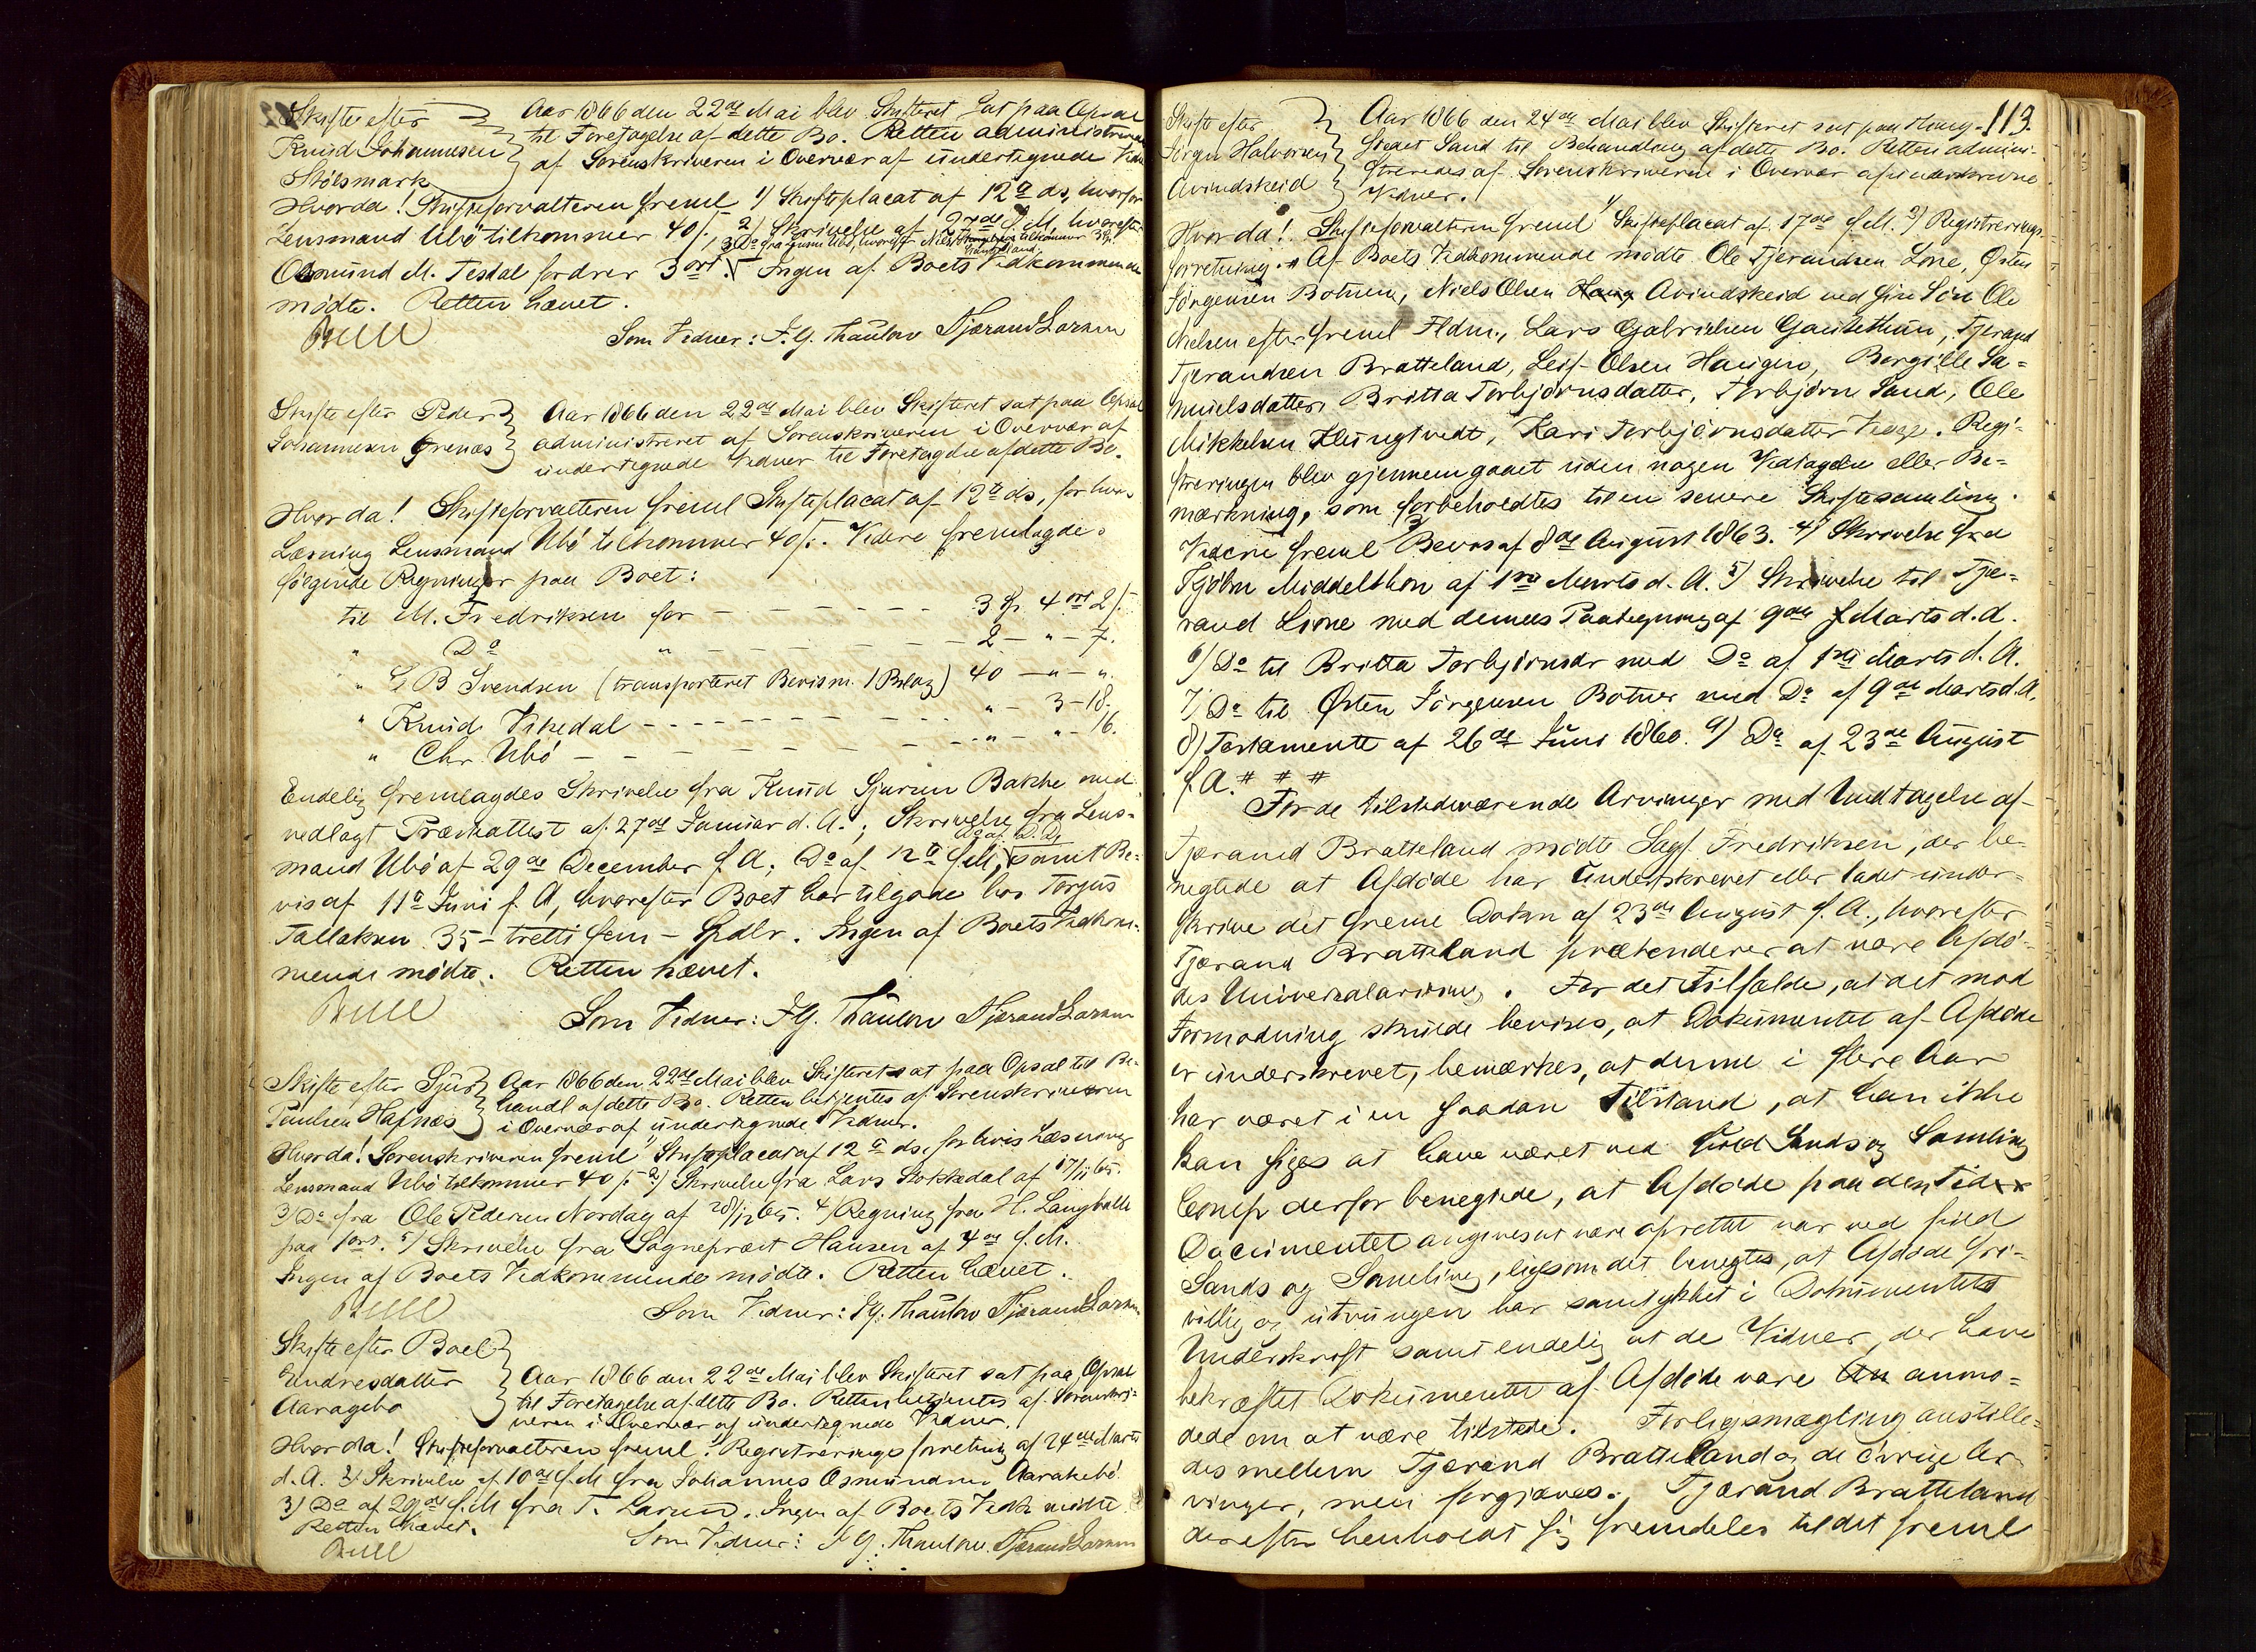 Skifte efter
Knud Johannesen
Stölsmark
Aar 1866 den 22de Mai blev Skifteret sat paa Opsal
til Foretagelse af dette Bo. Retten administreret
af Sorenskriveren i Overvær af undertegnede Vidner
Hvorda! Skifteforvalteren freml 1) Skifteplacat af 12te ds, hvorfor
Lensmand Ubö tilkommer 40 /. 2) Skrivelse af f. M. hvorefter
3) Do fra samme Ubö, hvorefter Niels tilkommer
Osmund M. Testal fordrer 3 ort. Ingen af Boets Vedkommende
mödte. Retten hævet.
Bull
Som Vidner: F. G. Thaulow Tjærand Larsen
Skifte efter Peder
Johannesen Grenæs
Aar 1866 den 22de Mai blev Skifteret sat paa Opsal
administreret af Sorenskriveren i Overvær af
undertegnede Vidner til Foretagelse af dette Bo.
Hvorda! Skifteforvalteren freml Skifteplacat af 12te ds, for hvis
Læsning Lensmand Ubö tilkommer 40 /. Videre fremlagdes
fölgende Regninger paa Boet:
til M. Fredriksen for - - - - - - 3 Sp. 4 ort 2 /.
" Do " - - - - - - 2 - " - 7.
" G B Svendsen (transporteret Bevis m. 1 Bilag) 40 - " - ".
" Knud Vikedal - - - - - - - " - 3 - 18.
" Chr. Ubö - - - - - - - " - " - 16.
Endelig fremlagdes Skrivelse fra Knud Sjursen Bakke med
vedlagt Præsteattest af 27de Januar d. A.; Skrivelse fra Lens-
mand Ubö af 29de December f. A; Do af 12te f. M; Do af D. D; samt Be-
vis af 11te Juni f. A, hvorefter Boet har tilgode hos Torgius
Tallaksen 35 - tretti fem - Spdlr. Ingen af Boets Vedkom-
mende mödte. Retten hævet.
Bull
Som Vidner: F. G. Thaulow Tjærand Larsen
Skifte efter Sjur
Paulsen Hafnæs
Aar 1866 den 22de Mai blev Skifteret sat paa Opsal til Be-
handl af dette Bo. Retten betjentes af Sorenskriveren
i Overvær af undertegnede Vidner.
Hvorda! Sorenskriveren freml 1) Skifteplacat af 12te ds. for hvis Læsning
Lensmand Ubö tilkommer 40 /. 2) Skrivelse fra Lars Stokkedal af 17/11 65.
3) Do fra Ole Pedersen Nordag af 28/12 65. 4) Regning fra H. Langballe
paa 1 ort. 5) Skrivelse fra Sognepræst Hansen af 4de f. M.
Ingen af Boets Vedkommende mödte. Retten hævet.
Bull
Som Vidner: F. G. Thaulow Tjærand Larsen
Skifte efter Boel
Endresdatter
Aaragebö
Aar 1866 den 22de Mai blev Skifteret sat paa Opsal
til Foretagelse af dette Bo. Retten betjentes af Sorenskri-
veren i Overvær af undertegnede Vidner.
Hvorda! Skifteforvalteren freml 1) Registreringsforretning af 24de Marts
d. A. 2) Skrivelse af 10de f. M fra Johannes Osmundsen Aarakebö.
3) Do af 29de f. M fra T. Larsen. Ingen af Boets Vedk mödte
Retten hævet.
Bull
Som Vidner: F. G. Thaulow. Tjærand Larsen
113.
Skifte efter
Jörgen Halvorsen
Avindskeid
Aar 1866 den 24de Mai blev Skifteret sat paa Thing-
stedet Sand til Behandling af dette Bo. Retten admini-
streredes af Sorenskriveren i Overvær af underskrevne
Vidner.
Hvorda! Skifteforvalteren freml 1) Skifteplacat af 17de f. M. 2) Registrerings-
forretning. # Af Boets Vedkommende mödte Ole Tjerandsen Lone, Östen
Jörgensen Botnen, Niels Olsen Haug Avindskeid ved sin Sön Ole
Nielsen efter freml Fldm., Lars Gabrielsen Gautethun, Tjerand
Tjerandsen Bratteland, Leif Olsen Haugen, Bergille Sa-
muelsdatter, Britta Torbjörnsdatter, Torbjörn Sand, Ole
Mikkelsen Klungtvedt, Kari Torbjörnsdatter Regi-
streringen blev gjennemgaaet uden nogen Vedtagelse eller Be-
mærkning, som forbeholdtes til en senere Skiftesamling.
Videre freml 3) Bevis af 8de August 1863. 4) Skrivelse fra
Tjöbn Middelthon af 1ste Marts d. A. 5) Skrivelse til Tje-
rand Lione med dennes Paategning af 9de Marts d. A.
6) Do til Britta Torbjörnsdr med Do af 1ste Marts d. A.
7) Do til Östen Jörgensen Botnen med Do af 9de Marts d. A.
8) Testamente af 26de Juni 1860. 9) Do af 23de August
f. A. # # #
For de tilstedeværende Arvinger med Undtagelse af
Tjærand Bratteland mödte Sagf. Fredriksen, der be-
negtede at Afdöde har underskrevet eller ladet under-
skrive det freml Dokm af 23de August f. A., hvorefter
Tjærand Bratteland prætenderer at være Afdö-
des Universalarving. For det Tilfælde, at det mod
Formodning skulde bevises, at Dokumentet af Afdöde
er underskrevet, bemærkes, at denne i flere Aar
har været i en saadan Tilstand, at han ikke
kan siges at have været ved fuld Sands og Samling
Comp. derfor benegtede, at Afdöde paa den Tid
Documentet angives at være oprettet var ved fuld
Sands og Samling, ligesom det benegtes, at Afdöde fri-
villig og utvungen har samtykket i Dokumentets
Underskrift samt endelig at de Vidner, der have
bekræftet Dokumentet af Afdöde vare anmo-
dede om at være tilstede. Forligsmægling anstille-
des mellem Tjærand Bratteland og de övrige Ar-
vinger, men forgjæves. Tjærand Bratteland
derefter henholdt sig fremdeles til det freml